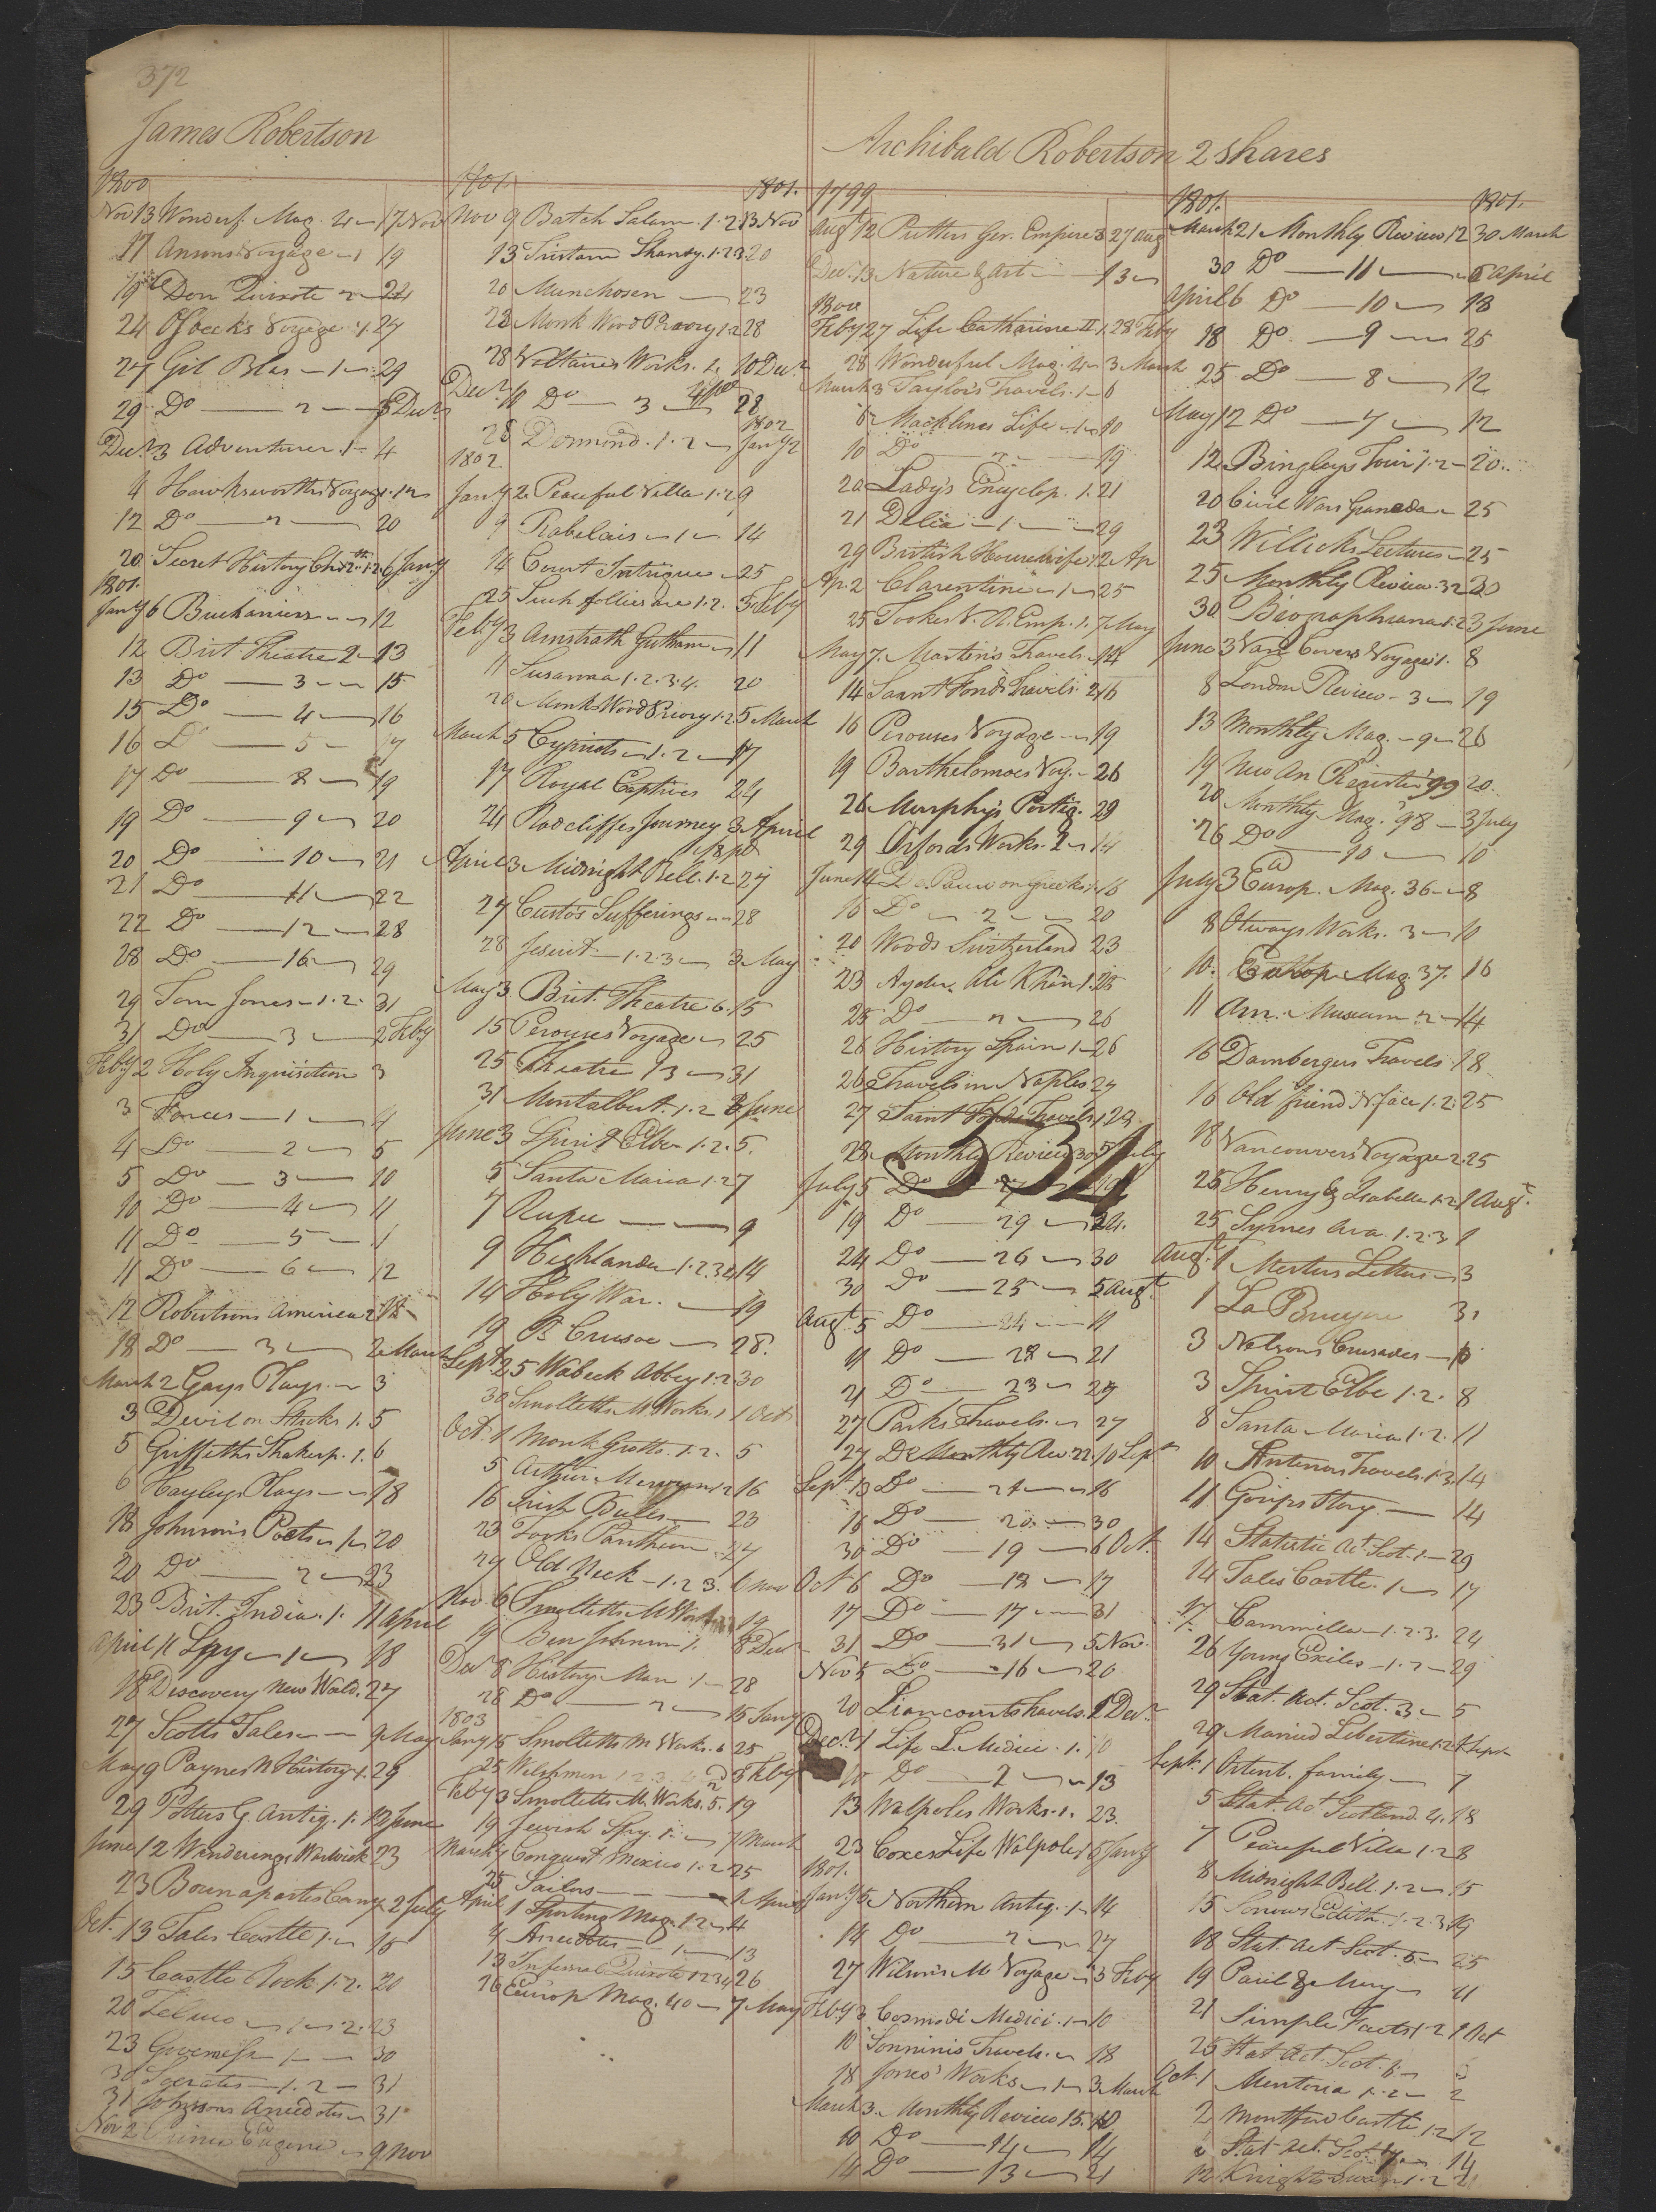 372
James Robertson
1800
Nov 13 Wonderf. Mag. 4 17 Nov
17 Ansons Voyage 1 19
19 Don Quixote 2 24
24 Voyage 1 27
27 Gil Blas 1 29
29 Do 2 3 Decr
Decr 3 Adventurer 1 4
4 Hawksworths Voyage 1 12
12 Do 2 20
20 Secret History 1.2 6 Jany
1801.
Jany 6 Buchaniers 12
12 Brit. Theatre 2 13
13 Do 3 15
15 Do 4 16
16 Do 5 17
17 Do 8 19
19 Do 9 20
20 Do 10 21
21 Do 11 22
22 Do 12 28
28 Do 16 29
29 Tom Jones 1.2. 31
31 Do 3 2 Feby
Feby 2 Holy Inquisition 3
3 Farces 1 4
4 Do 2 5
5 Do 3 10
10 Do 4 11
11 Do 5 11
11 Do 6 12
12 Robertsons America 2 18
18 Do 3 2 March
March 2 Gays Plays 3
3 Devil on Sticks 1. 5
5 Griffeths Shakesp. 1. 6
6 Hayleys Plays 18
18 Johnson's Poets 1 20
20 Do 2 23
23 Brit. India. 1. 11 April
April 11 Spy 1 18
18 Discovery New World. 27
27 Scotts Tales 9 May
May 9 Paynes N History 1. 29
29 Potters G. Antiq. 1. 12 June
June 12 Wanderings Warwick 23
23 Bounapartes Camp. 2 July
Oct. 13 Tales Castle 1 15
15 Castle Rock 1.2. 20
20 Zeluco 1 2. 23
23 Governess 1 30
30 Socrates 1.2 31
31 Johnsons Anecdotes 31
Nov 2 Prince Eugene 9 Nov
1801.
1801.
Nov 9 Batch Salam. 1.2 13 Nov
13 Tristam Shandy. 1.2.3 20
20 Munchosen 23
23 Monk Wood Priory 1.2 28
28 Voltaires Works. 2 10 Decr
Decr 10 Do 3 28
28 Desmond. 1.2
1802
Jany 2
1802
Jany 2 Peaceful Villa 1.2 9
9 Rabelais 1 14
14 Court Intrigue 25
25 Such follies are 1.2. 3 Feby
Feby 3 11
11 Susanna 1.2.3.4. 20
20 Monk Wood Priory 1.2 5 March
March 5 Cypriots 1.2 17
17 Royal Captives 24
24 Radcliffes Journey 3 April
April 3 Midnight Bell. 1.2 27
27 Custos Sufferings 28
28 Jesuit 1.2.3 3 May
May 3 Brit. Theatre 6. 15
15 Perouses Voyage 25
25 Theatre 13 31
31 Montalbert. 1.2 3 June
June 3 Spirit Elbe 1.2. 5.
5 Santa Maria 1.2 7
7 Rupee 9
9 Highlander 1.2.3.4 14
14 Holy War. 19
19 R Crusoe 28.
Sept 25 Wabeck Abbey 1.2 30
30 Smolletts M. Works. 1 1 Oct
Oct. 1 Monk Grotto. 1.2. 5
5 Arthur Mervyn 1.2 16
16 Irish Bulls 23
23 Tooks Pantheon 27
27 Old Nick 1.2 3. 6 Nov
Nov. 6 Smolletts M Works 19
19 Ben Johnson 1. 8 Decr
Decr 8 History Man 1 28
28 Do 2 15 Jany
1803
Jany 15 Smolletts M Works. 6 25
25 Welshmen 1.2.3.4 3 Feby
Feby 3 Smolletts M. Works. 5. 19
19 Jewish Spy. 1. 7 March
March 7 Conquest Mexico 1.2 25
25 Sailors 1 April
April 1 Sporting Mag. 12 4
4 Anecdotes 1 13
13 Infernal Quixote 1 2 3 4 26
26 Europ Mag. 40 7 May
Archibald Robertson 2 Shares
1799
Augt 12 Putters Ger. Empire 3 27 Aug
Decr. 13 Nature & Art 13
1800
Feby 27 Life Catharine II 1. 28 Feby
28 Wonderful Mag. 4 3 March
March 3 Taylors Travels. 1 6
6 Macklins Life 1 10
10 Do 2 19
20 Lady's Encyclop. 1. 21
21 Delia 1 29
29 British Housewife 1. 2 Ap
Ap. 2 Clarentine 1 25
25 Tookes V. R. Emp. 1. 7 May
May 7. Martin's Travels. 14
14 Saint Fonds Travels. 2 16
16 Perouses Voyage 19
19 Barthelomoes Voy. 26
26 Murphy's Portig. 29
29 Orfords Works. 2 14
June 14 De Pauw on Greeks 1. 16
16 Do 2 20
20 Woods Switzerland 23
23 Ayder Ali Khan 1. 25
25 Do 2 26
26 History Spain 1 26
26 Travels in Naples 27
27 Saint Fonds Travels 1 28
334
28 Monthly Review 30 5 July
July 5 Do 27 19
19 Do 29 24.
24 Do 26 30
30 Do 25 5 Augt.
Augt. 5 Do 24 11
11 Do 28 21
21 Do 23 27
27 Parks Travels 27
27 Do Monthly Rev. 22. 10 Sept
Sept 10 Do 21 16
16 Do 20 30
30 Do 19 6 Oct.
Oct 6 Do 18 17
17 Do 17 31
31 Do 31 5 Nov.
Nov 5 Do 16 20
20 Liancourts Travels. 1 Decr
Decr. 1 Life L. Medici. 1. 10
10 Do 2 13
13 Walpoles Works. 1. 23.
23 Coxes Life Walpole 1 5 Jany
1801.
Jany 5 Northern Antiq. 1 14
14 Do 2 27
27 Wilson's M Voyage 3 Feby
Feby 3 Cosmo di Medici. 1 10
10 Sonninis Travels. 18
18 Jones' Works 1 3 March
March 3. Monthly Review 15. 10
10 Do 14 14
14 Do 13 21
1801.
1801.
March 21 Monthly Review 12 30 March
30 Do 11 6 April
April 6 Do 10 18
18 Do 9 25
25 Do 8 12
May 12 Do 7 12
12 Bingleys Tour 1.2 20.
20 Civil Wars Granada 25
23 Willichs Lectures 25
25 Monthly Review. 32 30
30 Biographiana 1.2 3 June
June 3 Vancouvers Voyage 1. 8
8 London Review 3 19
13 Monthly Mag. 9 26
19 New An Register '99 20.
20 Monthly Mag. '98 3 July
26 Do 10 10
July 3 Europ. Mag. 36 8
8 Otways Works. 3 10
10. Europ Mag. 37. 16
11 Am. Museum 2 14
16 Dambergers Travels 18
16 Old friend N face 1.2. 25
18 Vancouvers Voyage 2. 25
25 Henry & Isabella 1.2 1 Augt.
25 Symes Ava. 1.2.3 1
Augt. 1 Letters 3
1 La Bruyere 3
3 Nelsons Crusades 10
3 Spirit Elbe 1.2. 8
8 Santa Maria 1.2. 11
10 Antenors Travels. 1.3. 14
11 Gossips Story 14
14 Statistic Act. Scot. 1. 29
14 Tales Castle. 1 17
17 Cammilla 1.2.3. 24
26 Young Exiles 1.2 29
29 Stat. Act. Scot. 3 5
29 Married Libertine 1.2 1 Sept
Sept. 1 Ortenb. family 7
5 Stat. Act Scotland. 4. 18
7 Peaceful Villa 1.2 8
8 Midnight Bell. 1.2 15
15 Sorrows Edith. 1.2.3 19
18 Stat. Act Scot. 5. 25
19 Paul & Mary 21
21 Simple Facts 1.2 1 Oct
25 Stat. Act. Scot. 6
Oct. 1 Mentoria 1.2 2
2 Montford Castle 1.2 12
Stat Act. Scot 7 14
12 Knights Swan 1.2 21